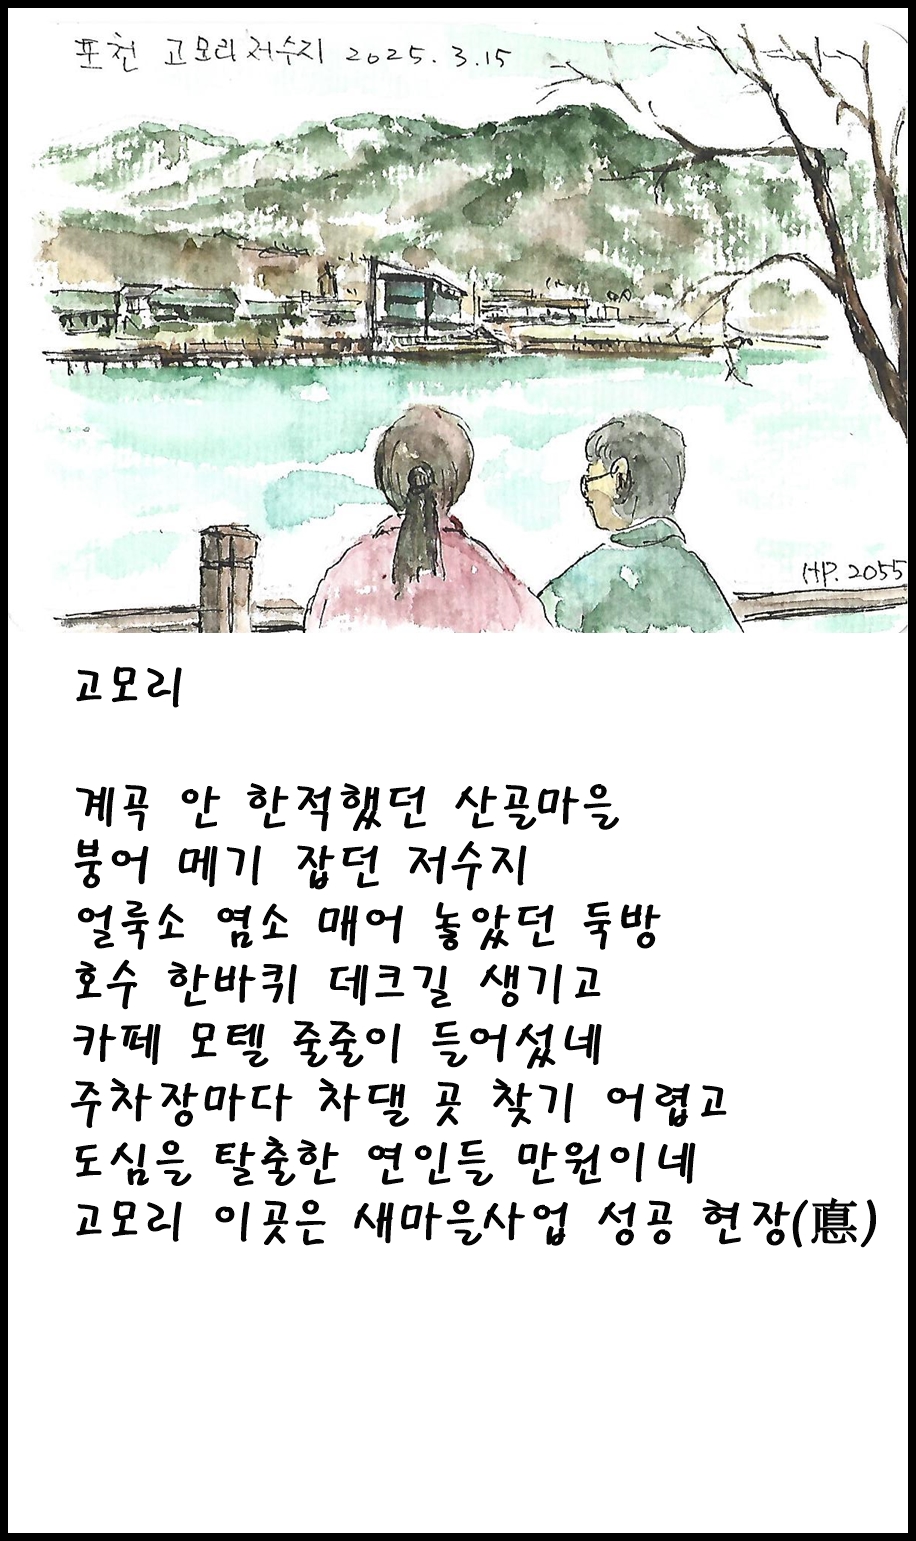 포천 고모리저수지 2025.3.15
HP.2055
고모리
계곡 안 한적했던 산골마을
붕어 메기 잡던 저수지
얼룩소 염소 매어 놓았던 둑방
호수 한바퀴 데크길 생기고
카페 모텔 줄줄이 들어섰네
주차장마다 차댈 곳 찾기 어렵고
도심을 탈출한 연인들 만원이네
고모리 이곳은 새마을사업 성공 현장(悳)